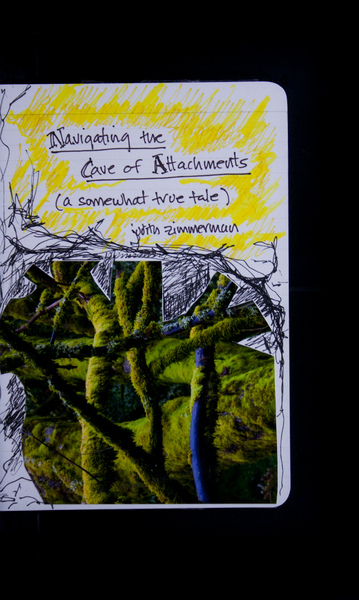 Navigating the
Cave of Attachments
(a somewhat true tale)
zimmerman